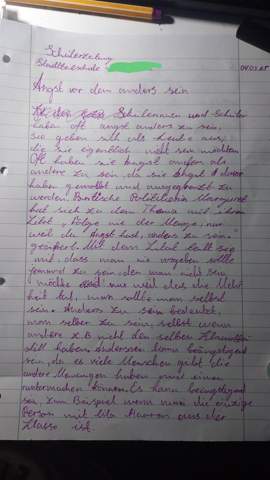 Schülerzeitung
Stadtteilschule
04.03.25
Angst vor dem anders sein
Schülerinnen und Schüler
haben oft angst anders zu sein,
sie geben sich als Leute aus,
die sie eigentlich nicht sein möchten
Oft haben sie Angst anders als
andere zu sein, da sie Angst davor
haben gemobbt und ausgegrenzt zu
werden. Britische Politikerin Margaret
hat sich zu dem Thema mit ihrem
Zitat, "Folge nie der Menge, nur
weil du Angst hast, anders zu sein."
geäußert. Mit dem Zitat will sie
mit, dass man nie vorgeben sollte
jemand zu sein, der man nicht sein
möchte nur weil das die Mehr
heit tut, man sollte man selbst
sein. Anders zu sein bedeutet,
man selber zu sein, selbst wenn
andere z.B nicht den selben
still haben. Anderssein kann beängstigend
sein, da es viele Menschen gibt die
andere Meinungen haben und einen
runtermachen können. Es kann beängstigend
sein, zum Beispiel wenn man die einzige
Person mit lila Haaren aus der
Klasse ist.